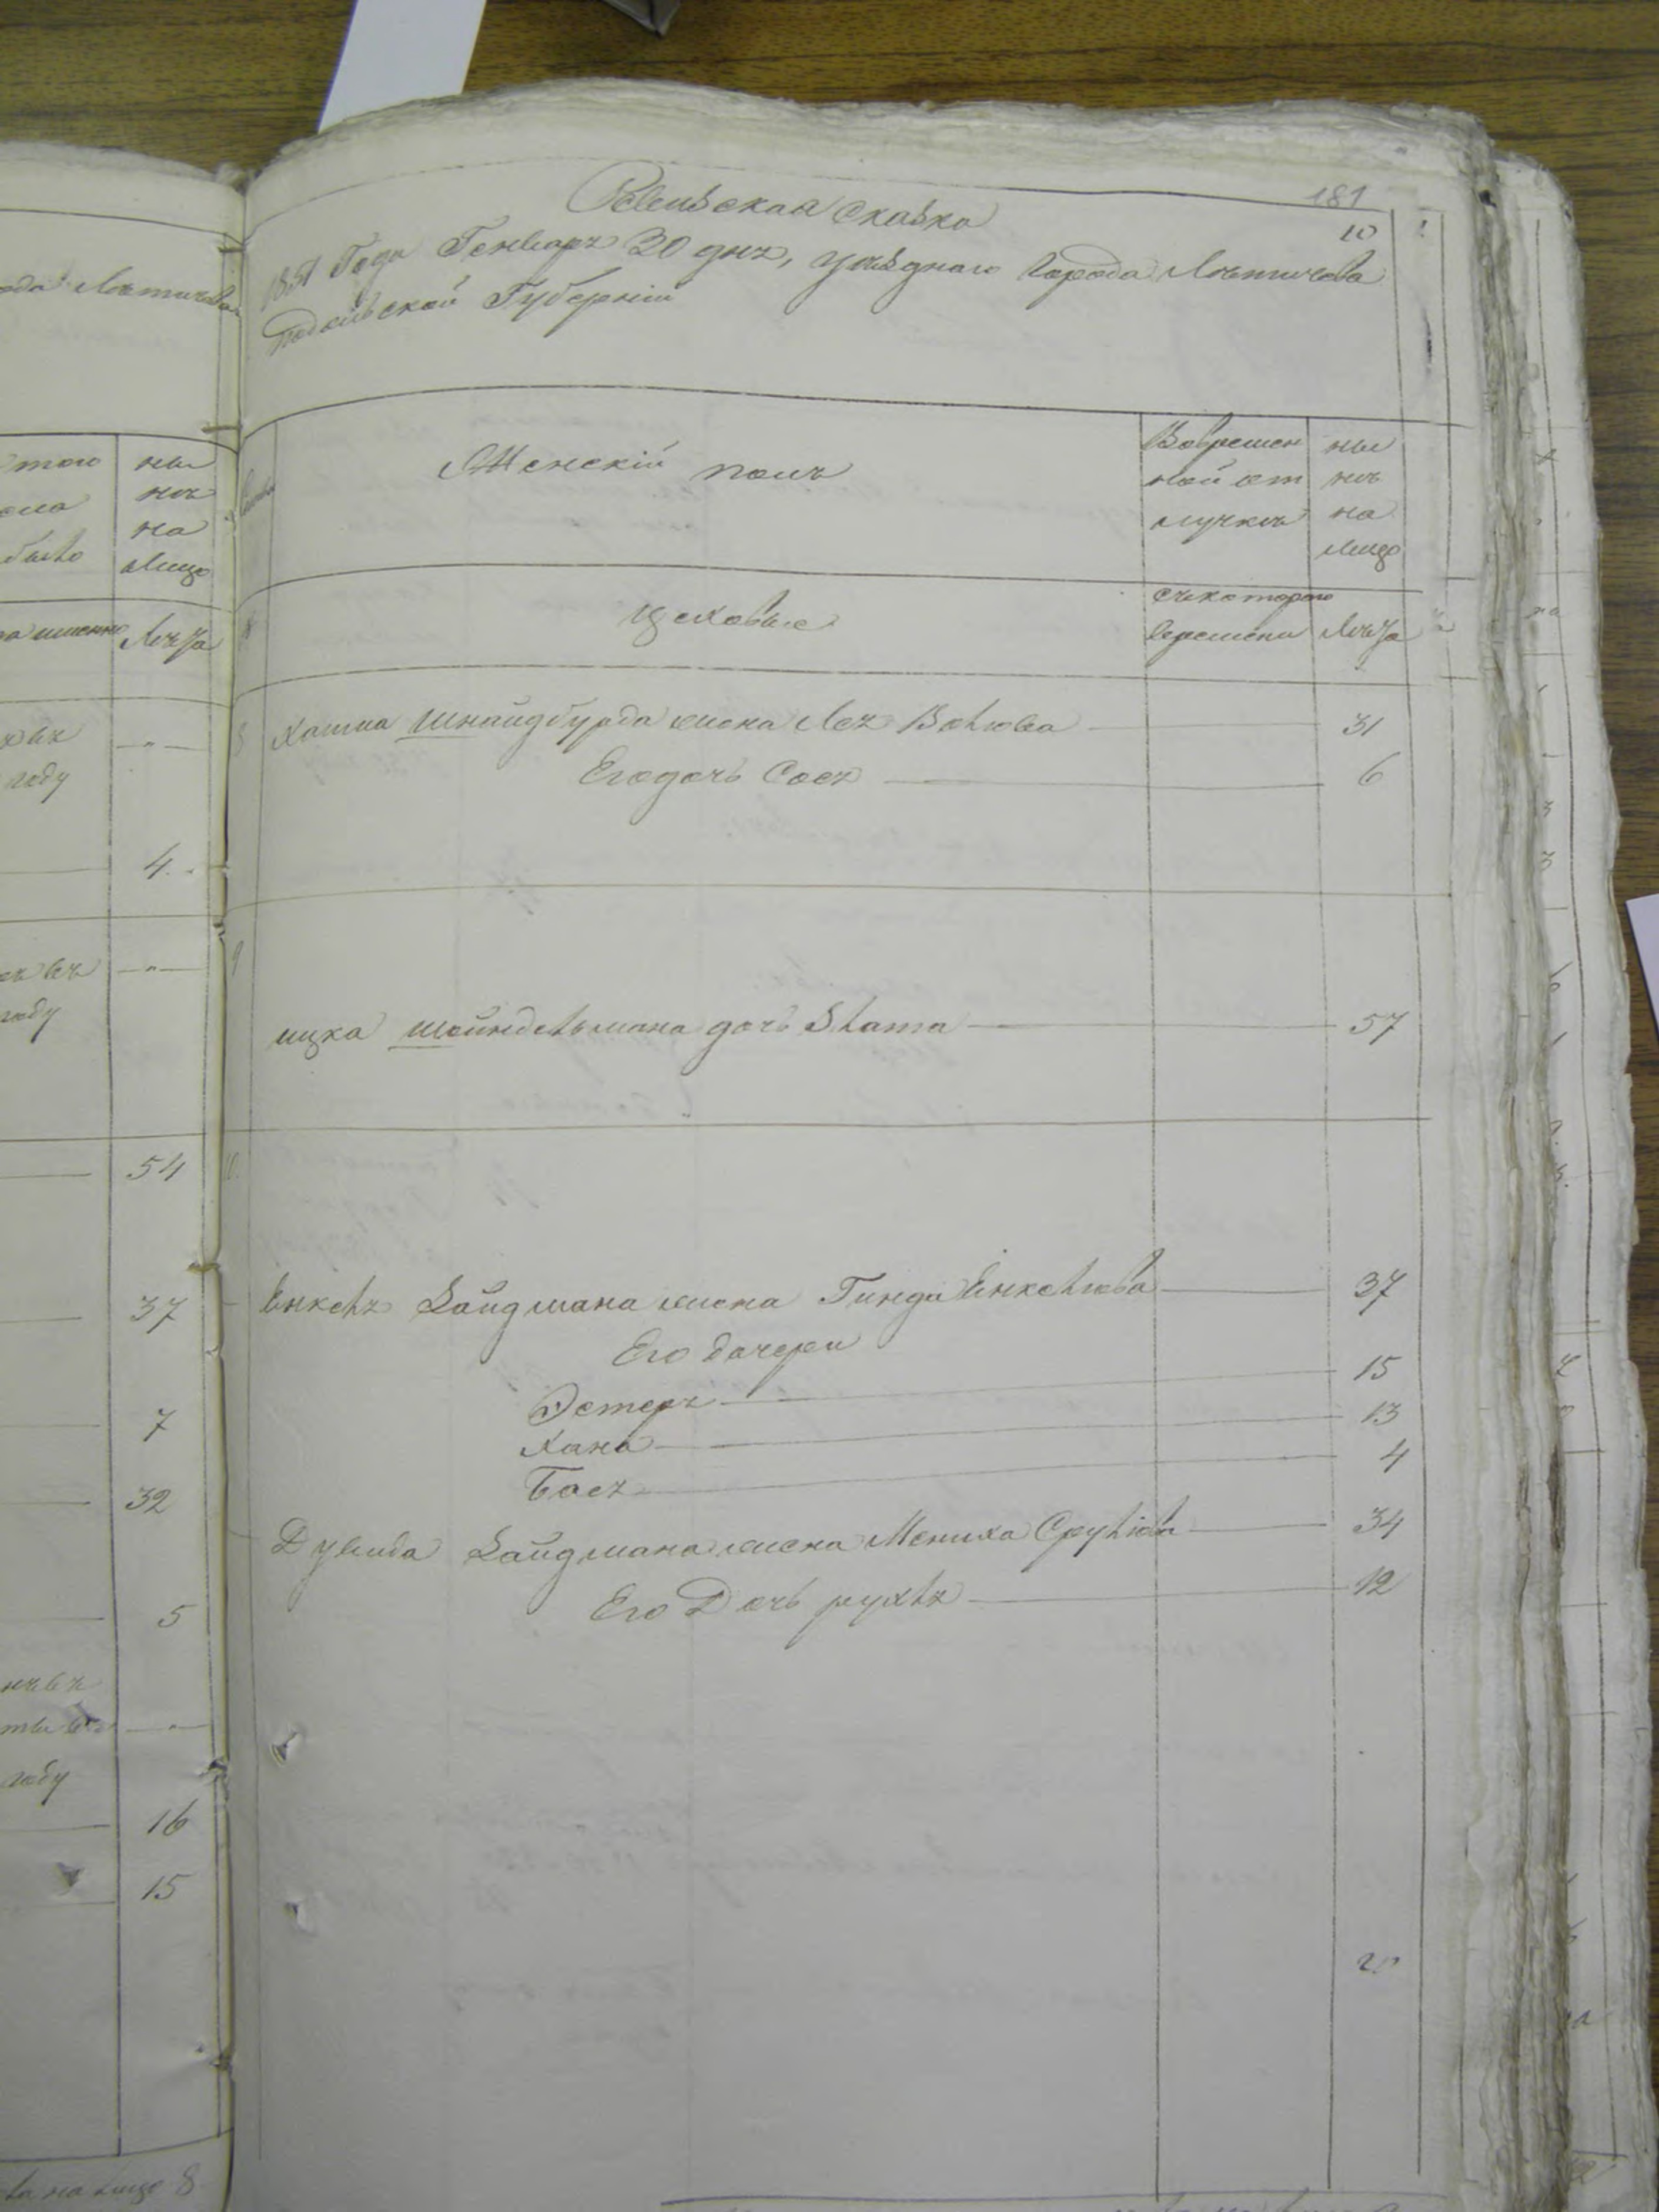 181
10
Ревизская сказка
1851 Года Генваря 30 дня, уѣзднаго Города Летичева
Подольской Губерніи
Женскій полъ
Вовремен
ной от
лучкѣ
ны
нѣ
на
лицо
Цеховые
съ котораго
времени
Лѣта
8
Хаима Шнайдбурда жена Лея Волкова 31
Его дочь Сося 6
9
ицка Шейндельмана дочь Злата 57
10
Енкеля Зайдмана жена Гинда Енкелюва 37
Его дочери
Эстеръ 15
Хана 13
Бася 4
Дувида Зайдмана жена Мениха Срулюва 34
Его Дочь рухля 12
ода Летичева
того
ела
было
ны
нѣ
на
лицо
а именно
Лѣта
году
4
году
54
37
7
32
5
году
16
15
на лицо 8